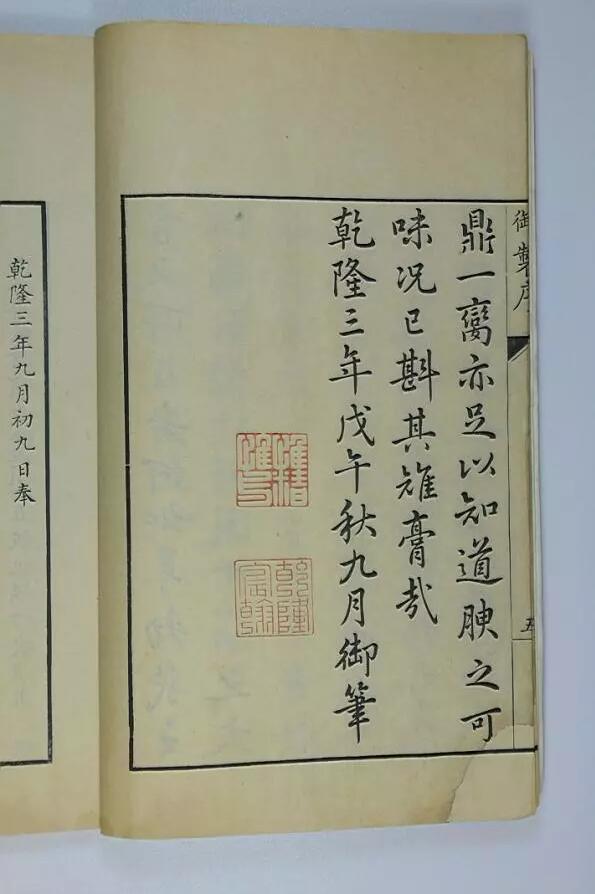 御製序
五
鼎一臠亦足以知道腴之可
味况已斟其雉膏哉
乾隆三年戊午秋九月御筆
惟精惟一
乾隆宸翰
乾隆三年九月初九日奉